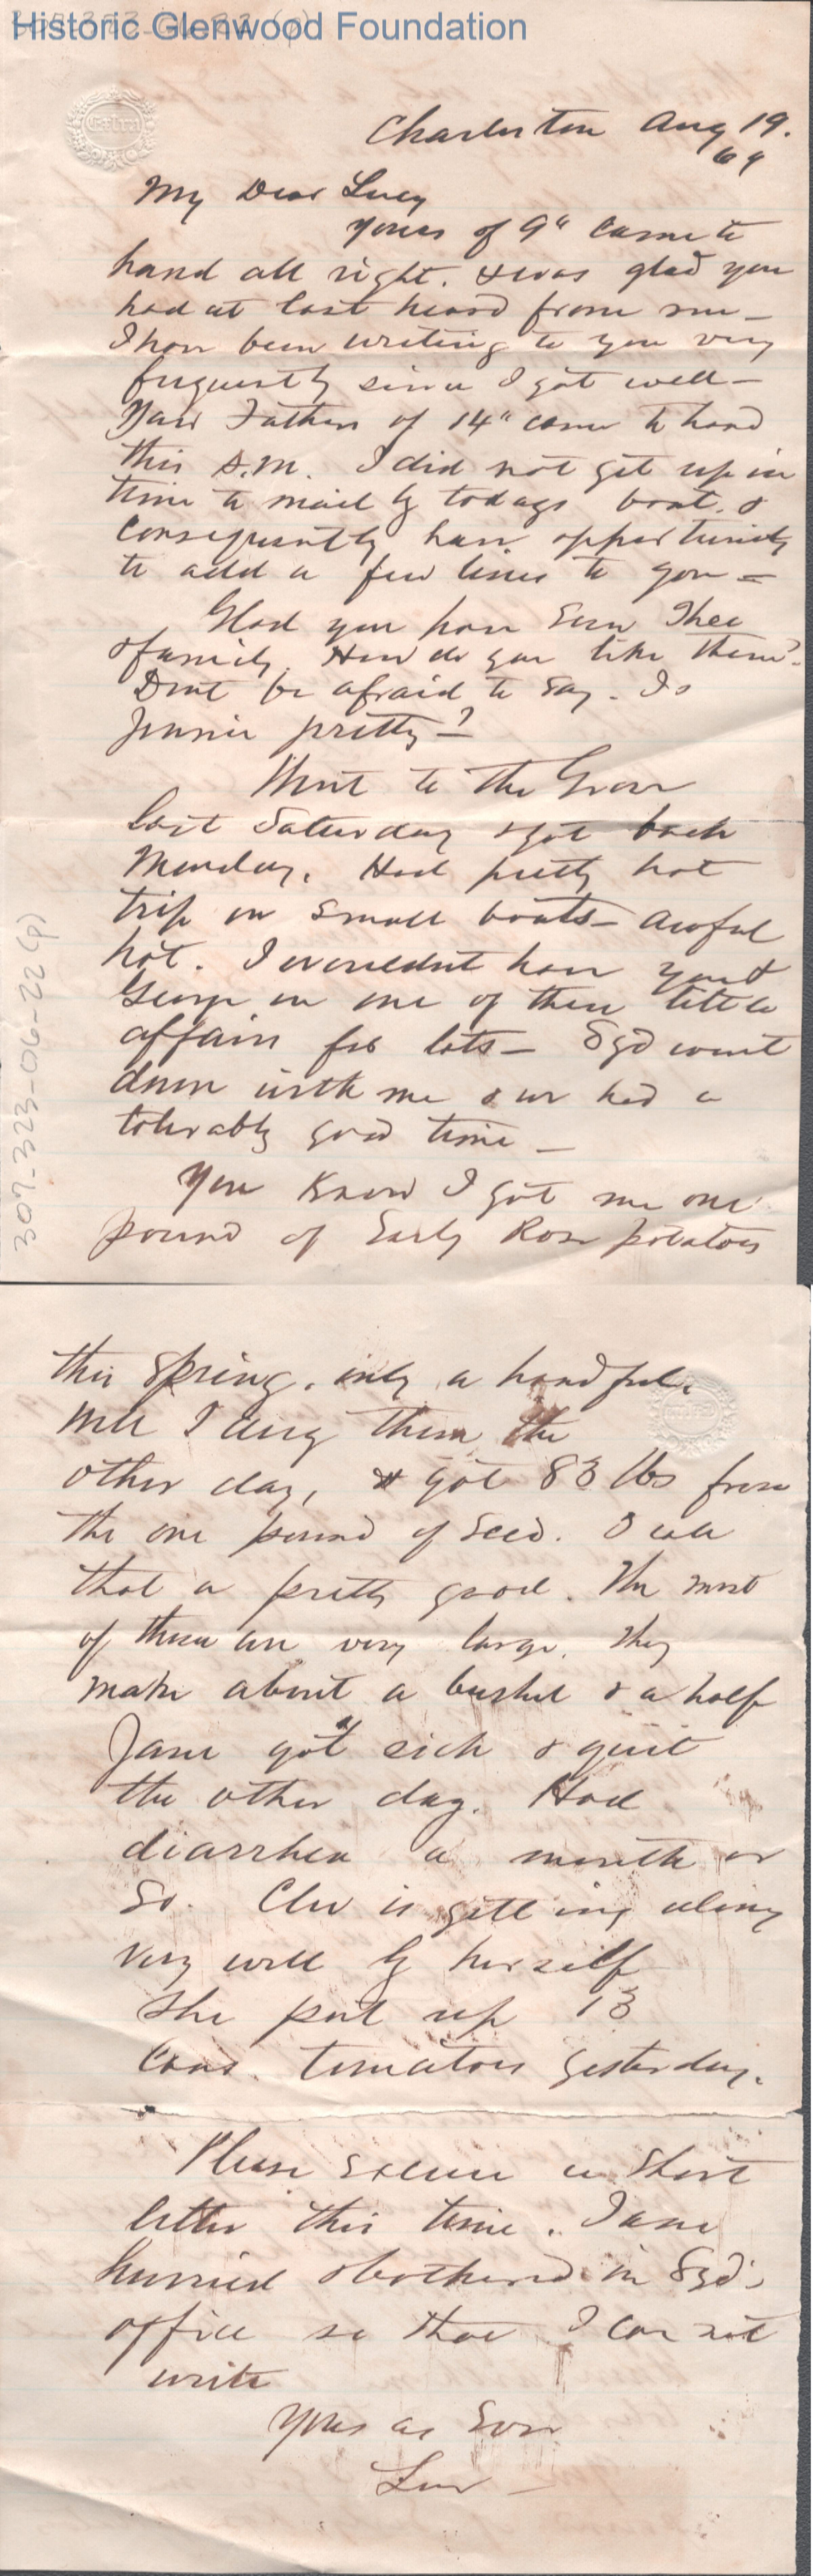 Historic Glenwood Foundation
Extra
Charleston Aug 19.
69
My Dear Lucy
Yours of 9" came to
hand all right. & was glad you
had at last heard from me –
I have been writing to you very
frequently since I got well –
Your Fathers of 14" came to hand
this A.M. I did not get up in
time to mail by todays boat, &
consequently have opportunity
to add a few lines to you =
Glad you have seen Thee
& family. How do you like them?
Dont be afraid to say. Is
Jennie pretty?
Went to the Grove
last Saturday & got back
Monday. Had pretty hot
trip on small boats – awful
hot. I wouldnt have you &
George on one of these little
affairs for lots – Syd went
down with me & we had a
tolerably good time –
You know I got me one
pound of Early Rose potatoes
307-323-06-22 (p)
this spring. only a handful.
Well I dug them the
other day, & got 83 lbs from
the one pound of seed. I call
that a pretty good. The most
of them are very large. They
make about a bushel & a half
Jane got sick & quit
the other day. Had
diarrhea a month or
so. Clu is getting along
very well by herself
She put up 13
cans tomatoes yesterday.
Please excuse a short
letter this time. I am
hurried & bothered in Syd's
office so that I can not
write
Yours as Ever
Lew –